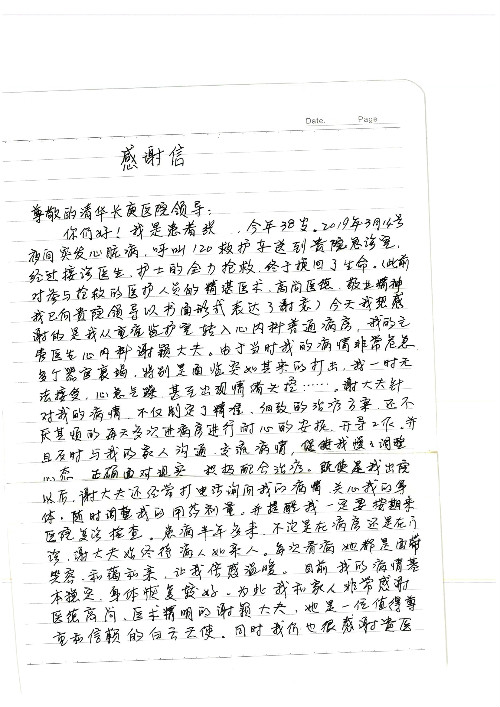 Date. Page
感谢信
尊敬的清华长庚医院领导：
你们好！我是患者我 ，今年38岁。2019年3月14号
夜间突发心脏病，呼叫120救护车送到贵院急诊室，
经过接诊医生、护士的全力抢救，终于挽回了生命。（此前
对参与抢救的医护人员的精湛医术、高尚医德、敬业精神
我已向贵院领导以书面形式表达了谢意）今天我想感
谢的是我从重症监护室转入心内科普通病房，我的主
管医生心内科谢颖大夫。由于当时我的病情非常危急
多个器官衰竭，特别是面临突如其来的打击，我一时无
法接受，心急气躁，甚至出现情绪失控……。谢大夫针
对我的病情，不仅制定了精准、细致的治疗方案，还不
厌其烦的每天多次进病房进行耐心的安抚、开导工作，并
且及时与我的家人沟通、交流病情，促使我慢慢调整
心态，正确面对现实，积极配合治疗。既使是我出院
以后，谢大夫还经常打电话询问我的病情，关心我的身
体，随时调整我的用药剂量，并提醒我一定要按期来
医院复诊检查。患病半年多来，不论是在病房还是在门
诊，谢大夫始终待病人如亲人。每次看病她都是面带
笑容、和蔼和亲，让我倍感温暖。目前我的病情基
本稳定，身体恢复较好。为此我和家人非常感谢
医德高尚、医术精明的谢颖大夫，她是一位值得尊
重和信赖的白衣天使。同时我们也很感谢贵医